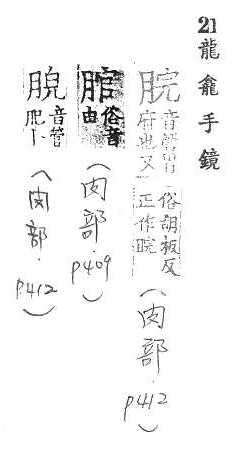 21 龍龕手鏡
脘 音管胃
府也又
俗胡板反
正作
(肉部.p412)
俗音
由
(肉部.p409)
音管
肥
(肉部.p412)